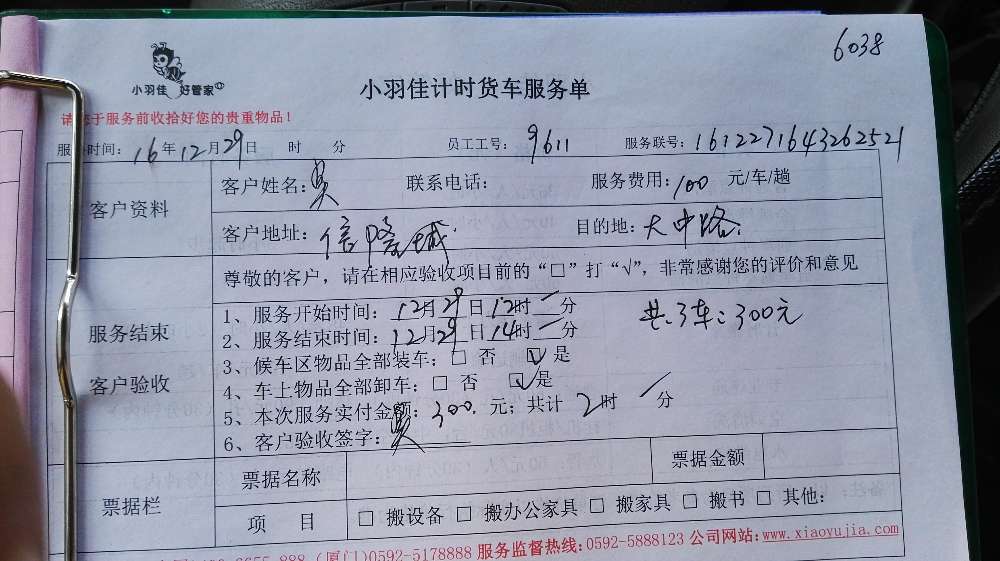 6038
小羽佳 好管家
小羽佳计时货车服务单
请您于服务前收拾好您的贵重物品！
服务时间：16年12月29日 时 分 员工工号：9611 服务联号：1612271643262521
客户资料
客户姓名：吴 联系电话： 服务费用：100 元/车/趟
客户地址：信隆城 目的地：大中路
服务结束
客户验收
尊敬的客户，请在相应验收项目前的“□”打“√”，非常感谢您的评价和意见
1、服务开始时间：12月29日12时一分
2、服务结束时间：12月29日14时一分
共3车：300元
3、候车区物品全部装车：□ 否 ☑ 是
4、车上物品全部卸车：□ 否 ☑ 是
5、本次服务实付金额：300.元；共计 2时 一 分
6、客户验收签字：吴
票据栏
票据名称 票据金额
项 目 □ 搬设备 □ 搬办公家具 □ 搬家具 □ 搬书 □ 其他：
(厦门)0592-5178888 服务监督热线：0592-5888123 公司网站：www.xiaoyujia.com